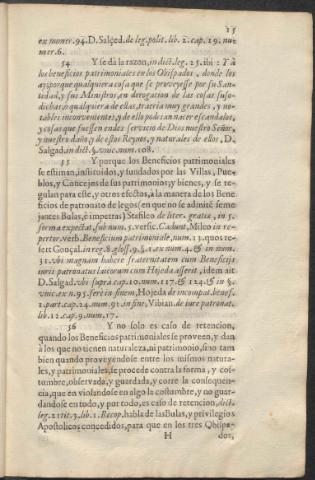 15
ex moner. 94. D. Salçed. de leg. polit. lib. 2. cap. 19. nu-
mer. 6.
54 Y se dà la razon, in dict. leg. 25. ibi: Y à
los beneficios patrimoniales en los Obispados, donde los
ay; porque qualquiera cosa que se proveyesse por su San-
tidad, y sus Ministros, en derogacion de las cosas suso-
dichas, ò qualquiera de ellas, traeria muy grandes, y no-
tables inconvenientes; y de ello podrian nacer escandalos,
y cosas que fuessen en deservicio de Dios nuestro Señor,
y nuestro daño, y de estos Reynos, y naturales de ellos, D.
Salgad. in dict. §. vnic. num. 108.
55 Y porque los Beneficios patrimoniales
se estiman, instituidos, y fundados por las Villas, Pue-
blos, y Concejos de sus patrimonios, y bienes, y se re-
gulan para este, y otros efectos, à la manera de los Bene-
ficios de patronato de legos (en que no se admite seme-
jantes Bulas, è impetras) Stafileo de liter. gratiæ, in 5.
forma expectat. sub num. 5. versic. Cadunt, Mileo in re-
pertor. verb. Beneficium patrimoniale, num. 13. quos re-
fert Gonçal. in reg. 8. gloss. 9. §. 1. ex num. 4. & in num.
31. vbi magnam habere fraternitatem cum Beneficij
iuris patronatus laicorum cum Hojeda asserit, idem ait
D. Salgad. vbi supra cap. 10. num. 117. & 124. & in §.
vnic. ex n. 95. ferè in finem, Hojeda de incompat. benef.
1. part. cap. 24. num. 91. in fine, Vibian. de iure patronat.
lib. 12. cap. 9. num. 17.
56 Y no solo es caso de retencion,
quando los Beneficios patrimoniales se proveen, y dan
à los que no tienen naturaleza, ni patrimonio, sino tam
bien quando proveyendose entre los mismos natura-
les, y patrimoniales, se procede contra la forma, y cos-
tumbre, observada, y guardada, y corre la consequen-
cia, que en violandose en algo la costumbre, y no guar-
dandose en todo, y por todo, es caso de retencion, dict.
leg. 21. tit. 3. lib. 1. Recop. habla de las Bulas, y privilegios
Apostolicos concedidos, para que en los tres Obispa-
H dos,